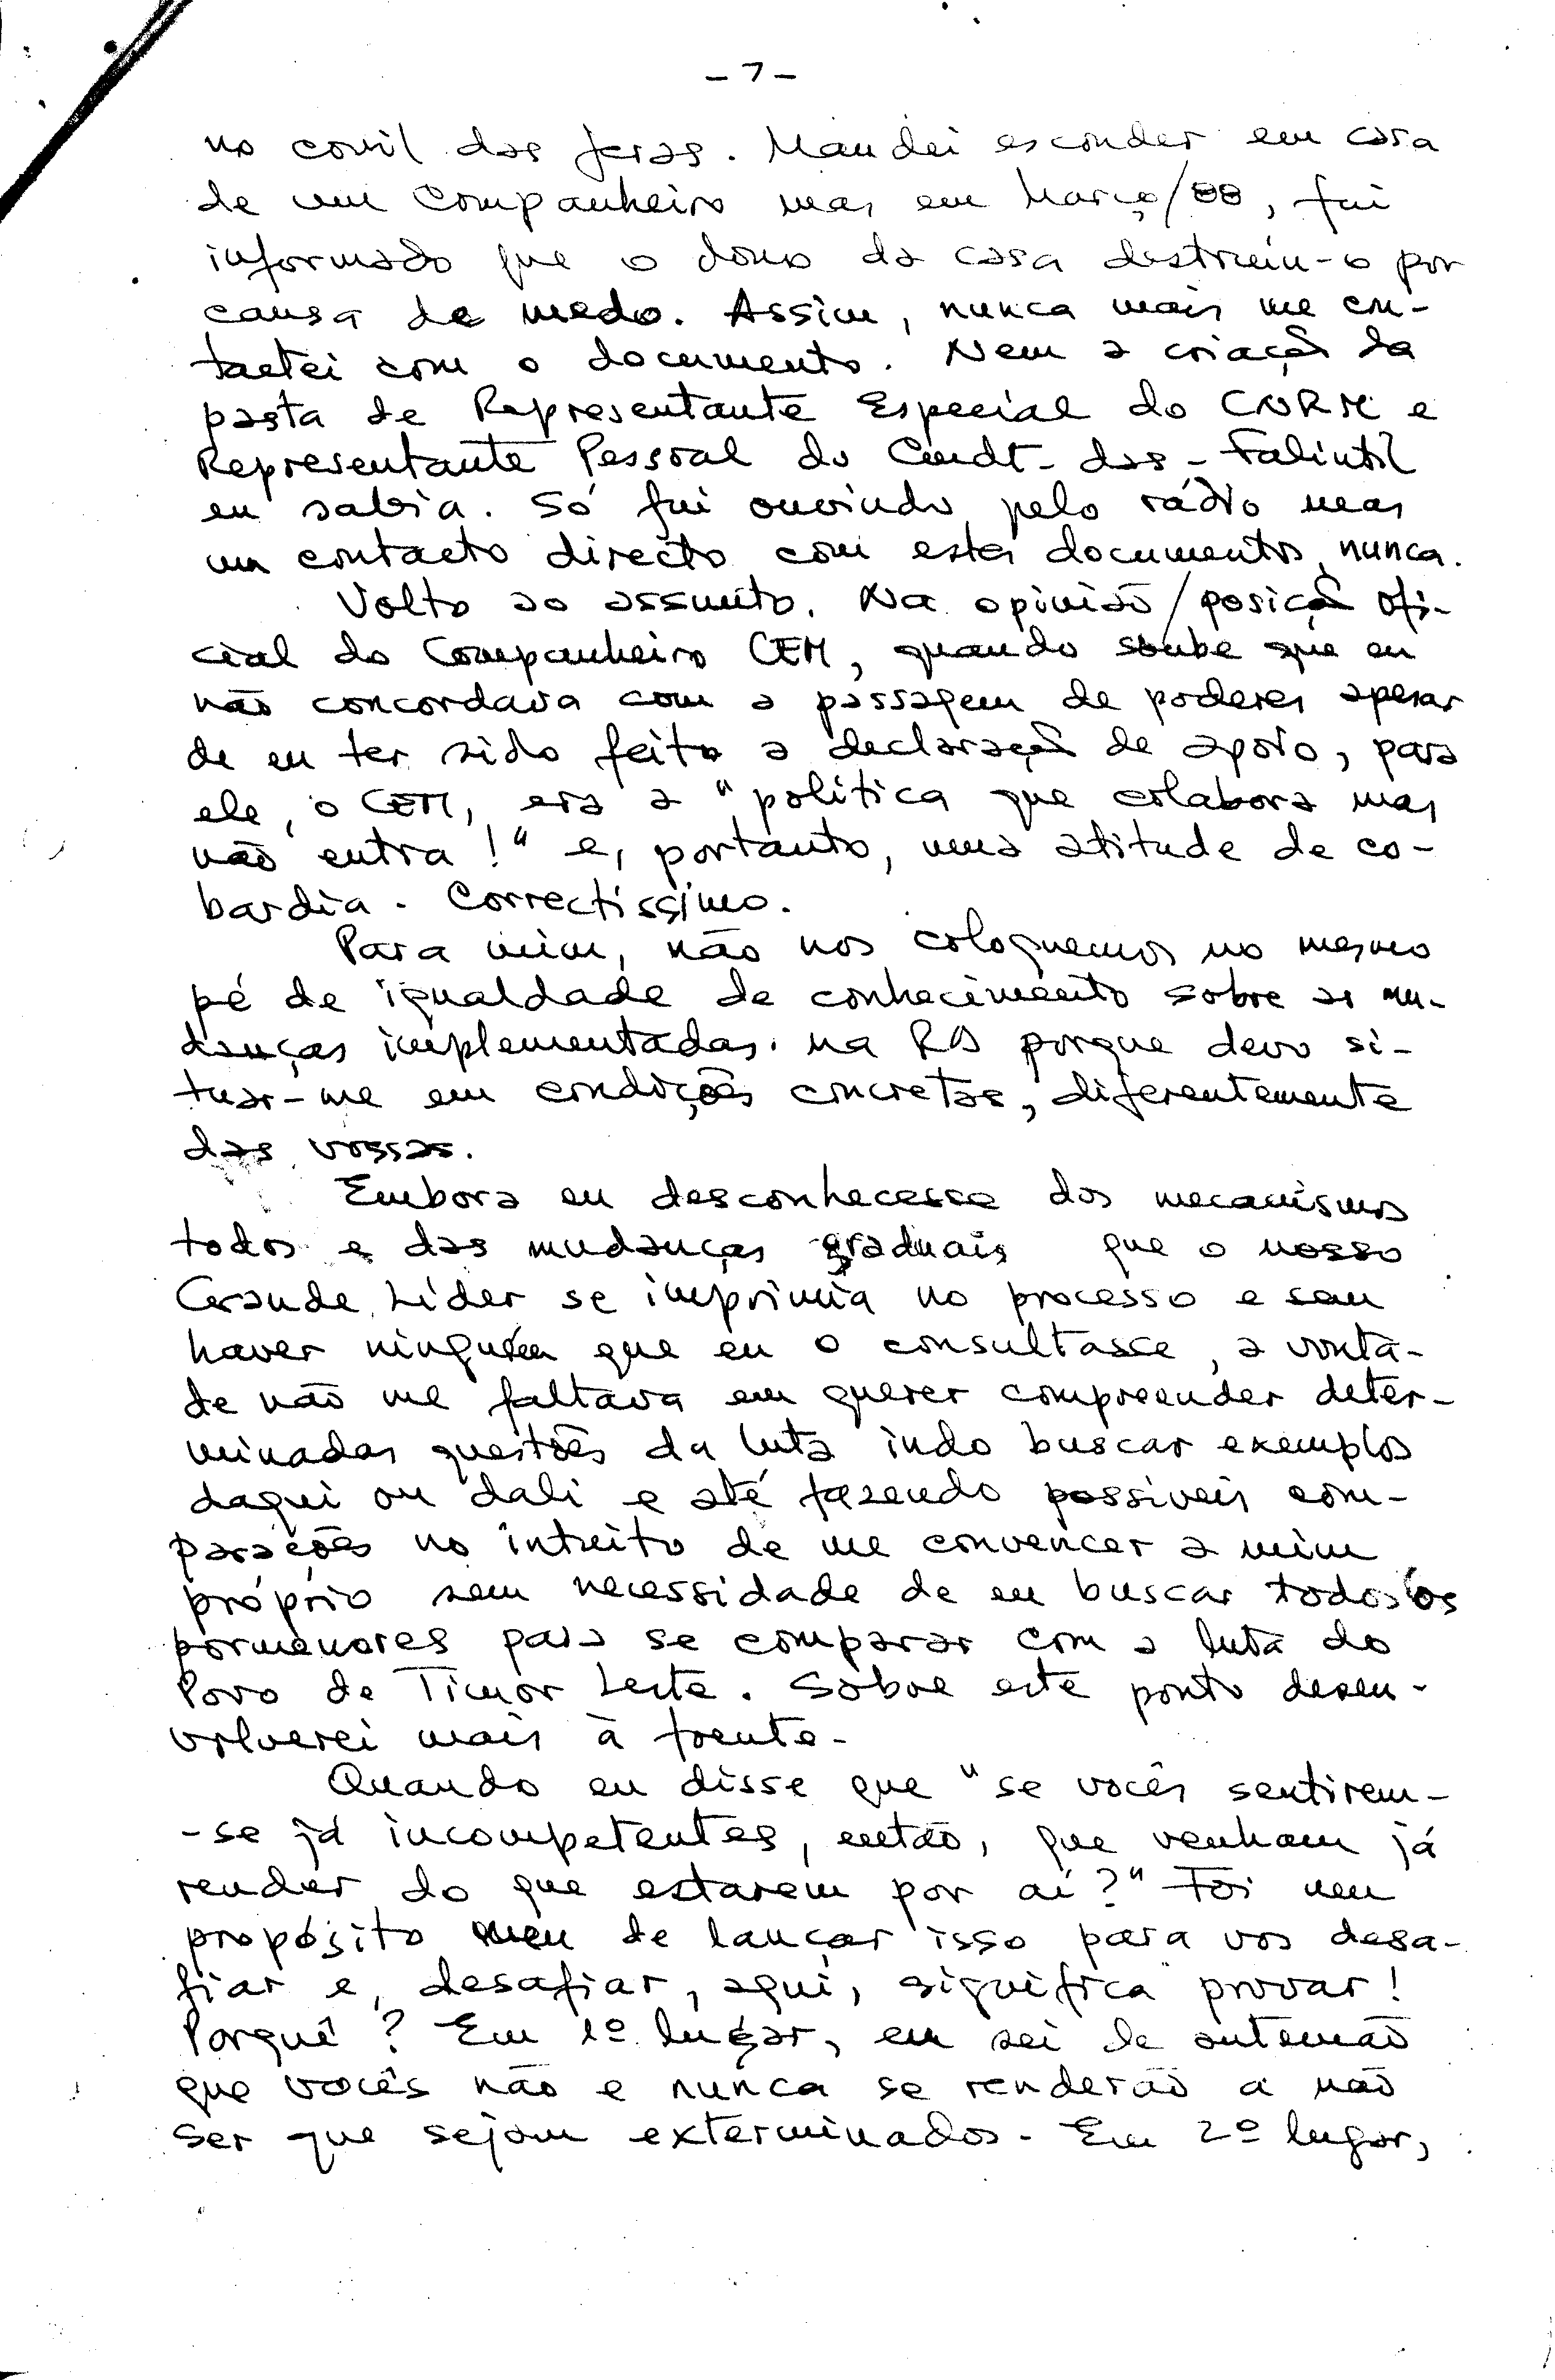 - 7 -
no covil das feras. Mandei esconder em casa
de um Companheiro mas em Março/88, fui
informado que o dono da casa destruiu-o por
causa de medo. Assim, nunca mais me con-
tactei com o documento. Nem a criação da
pasta de Representante Especial do CNRM e
Representante Pessoal do Cmdt- das - Falintil
eu sabia. Só fui ouvindo pelo rádio mas
um contacto directo com estes documentos, nunca.
Volto ao assunto. Na opinião/posição ofi-
cial do Companheiro CEM, quando soube que eu
não concordava com a passagem de poderes apesar
de eu ter sido feito a declaração de apoio, para
ele, o CEM, era a "política que colabora mas
não entra!" e, portanto, uma atitude de co-
bardia. Correctíssimo.
Para mim, não nos coloquemos no mesmo
pé de igualdade de conhecimento sobre as mu-
danças implementadas na RA porque devo si-
tuar-me em condições concretas, diferentemente
das vossas.
Embora eu desconhecesse dos mecanismos
todos e das mudanças graduais que o nosso
Grande Líder se imprimia no processo e sem
haver ninguém que eu o consultasse, a vonta-
de não me faltava em querer compreender deter-
minadas questões da luta indo buscar exemplos
daqui ou dali e até fazendo possíveis com-
parações no intuito de me convencer a mim
próprio sem necessidade de eu buscar todos os
pormenores para se comparar com a luta do
Povo de Timor Leste. Sobre este ponto desen-
volverei mais à frente.
Quando eu disse que "se vocês sentirem-
-se já incompetentes, então, que venham já
render do que estarem por aí?" Foi um
propósito meu de lançar isso para vos desa-
fiar e, desafiar, aqui, significa provar!
Porquê? Em 1º lugar, eu sei de antemão
que vocês não e nunca se renderão a não
ser que sejam exterminados. Em 2º lugar,